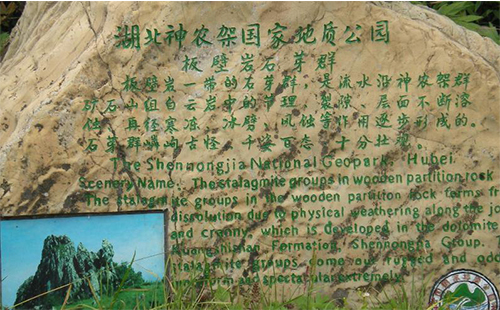 湖北神农架国家地质公园
板壁岩石芽群
板壁岩一带的石芽群，是流水沿神农架群
矿石山组白云岩中的节理、裂隙、层面不断溶
蚀，真经寒冻、冰劈、风蚀等作用逐步形成的。
石芽群嶙峋古怪，千姿百态，十分壮观。
The Shennongjia National Geopark, Hubei
Scenery Name: The stalagmite groups in wooden partition rock
The stalagmite groups in the wooden partition rock forms in
dissolution due to physical weathering along the jo
and cranny, which is developed in the dolomite
Kuangshishan Formation, Shennongjia Group.
stalagmite groups some our rugged and odd
in form and spectacular extremely